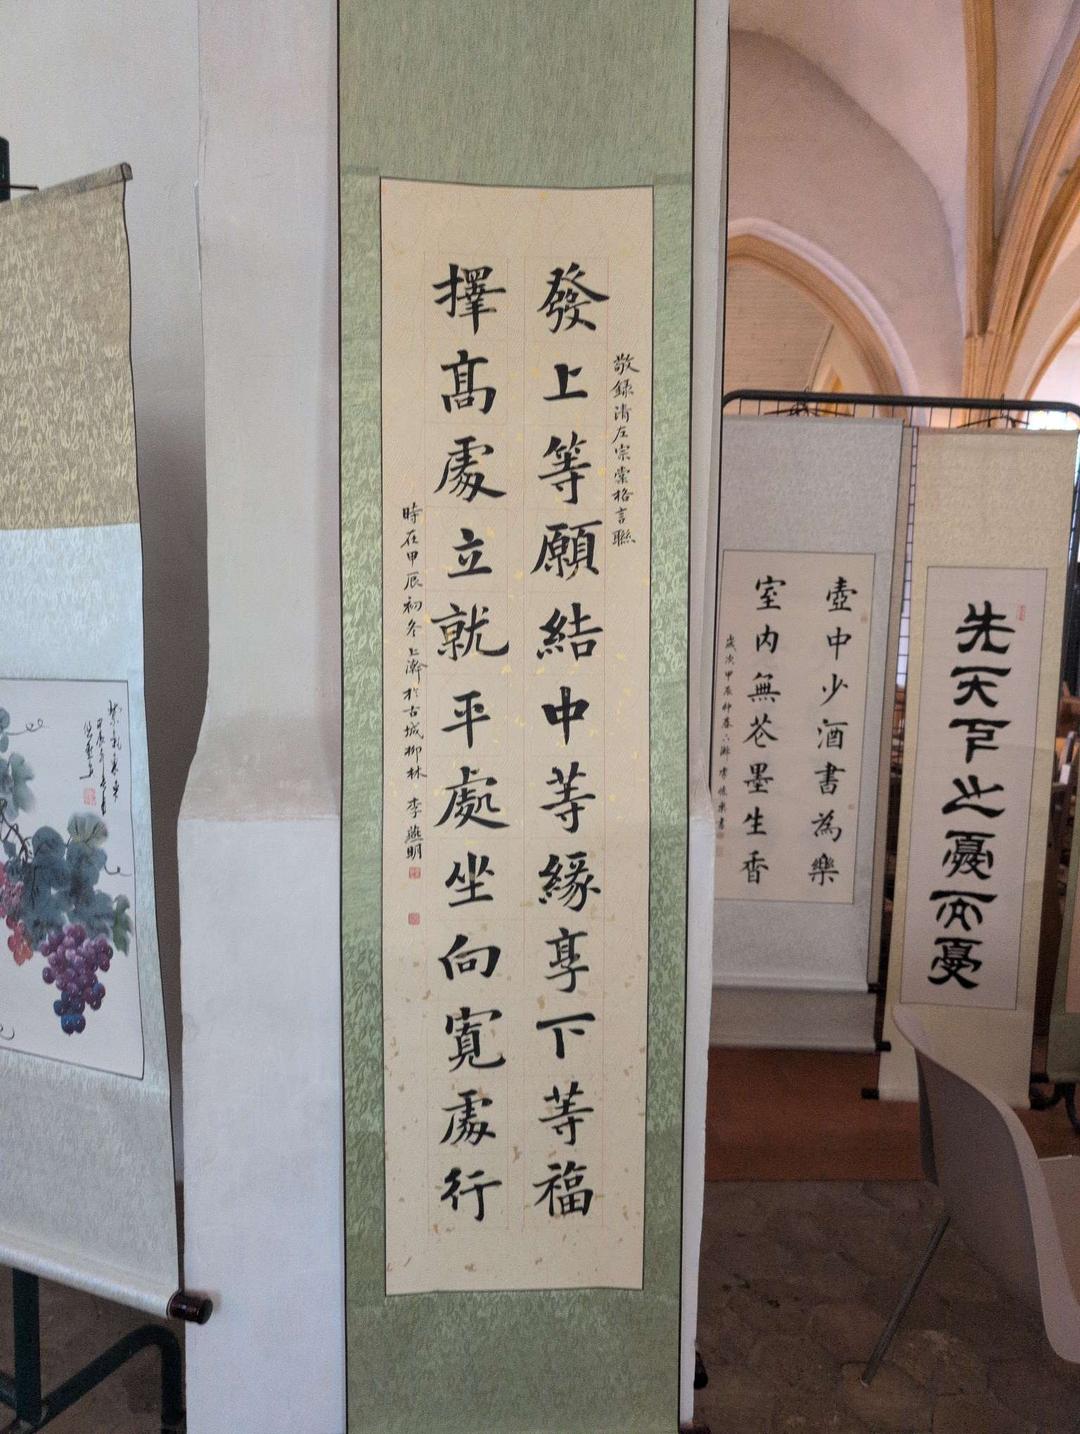 敬録清左宗棠格言聯
發上等願結中等緣享下等福
擇高處立就平處坐向寬處行
時在甲辰初冬上澣於古城柳林 李燕明
壺中少酒書為樂
室内無花墨生香
先天下之憂而憂